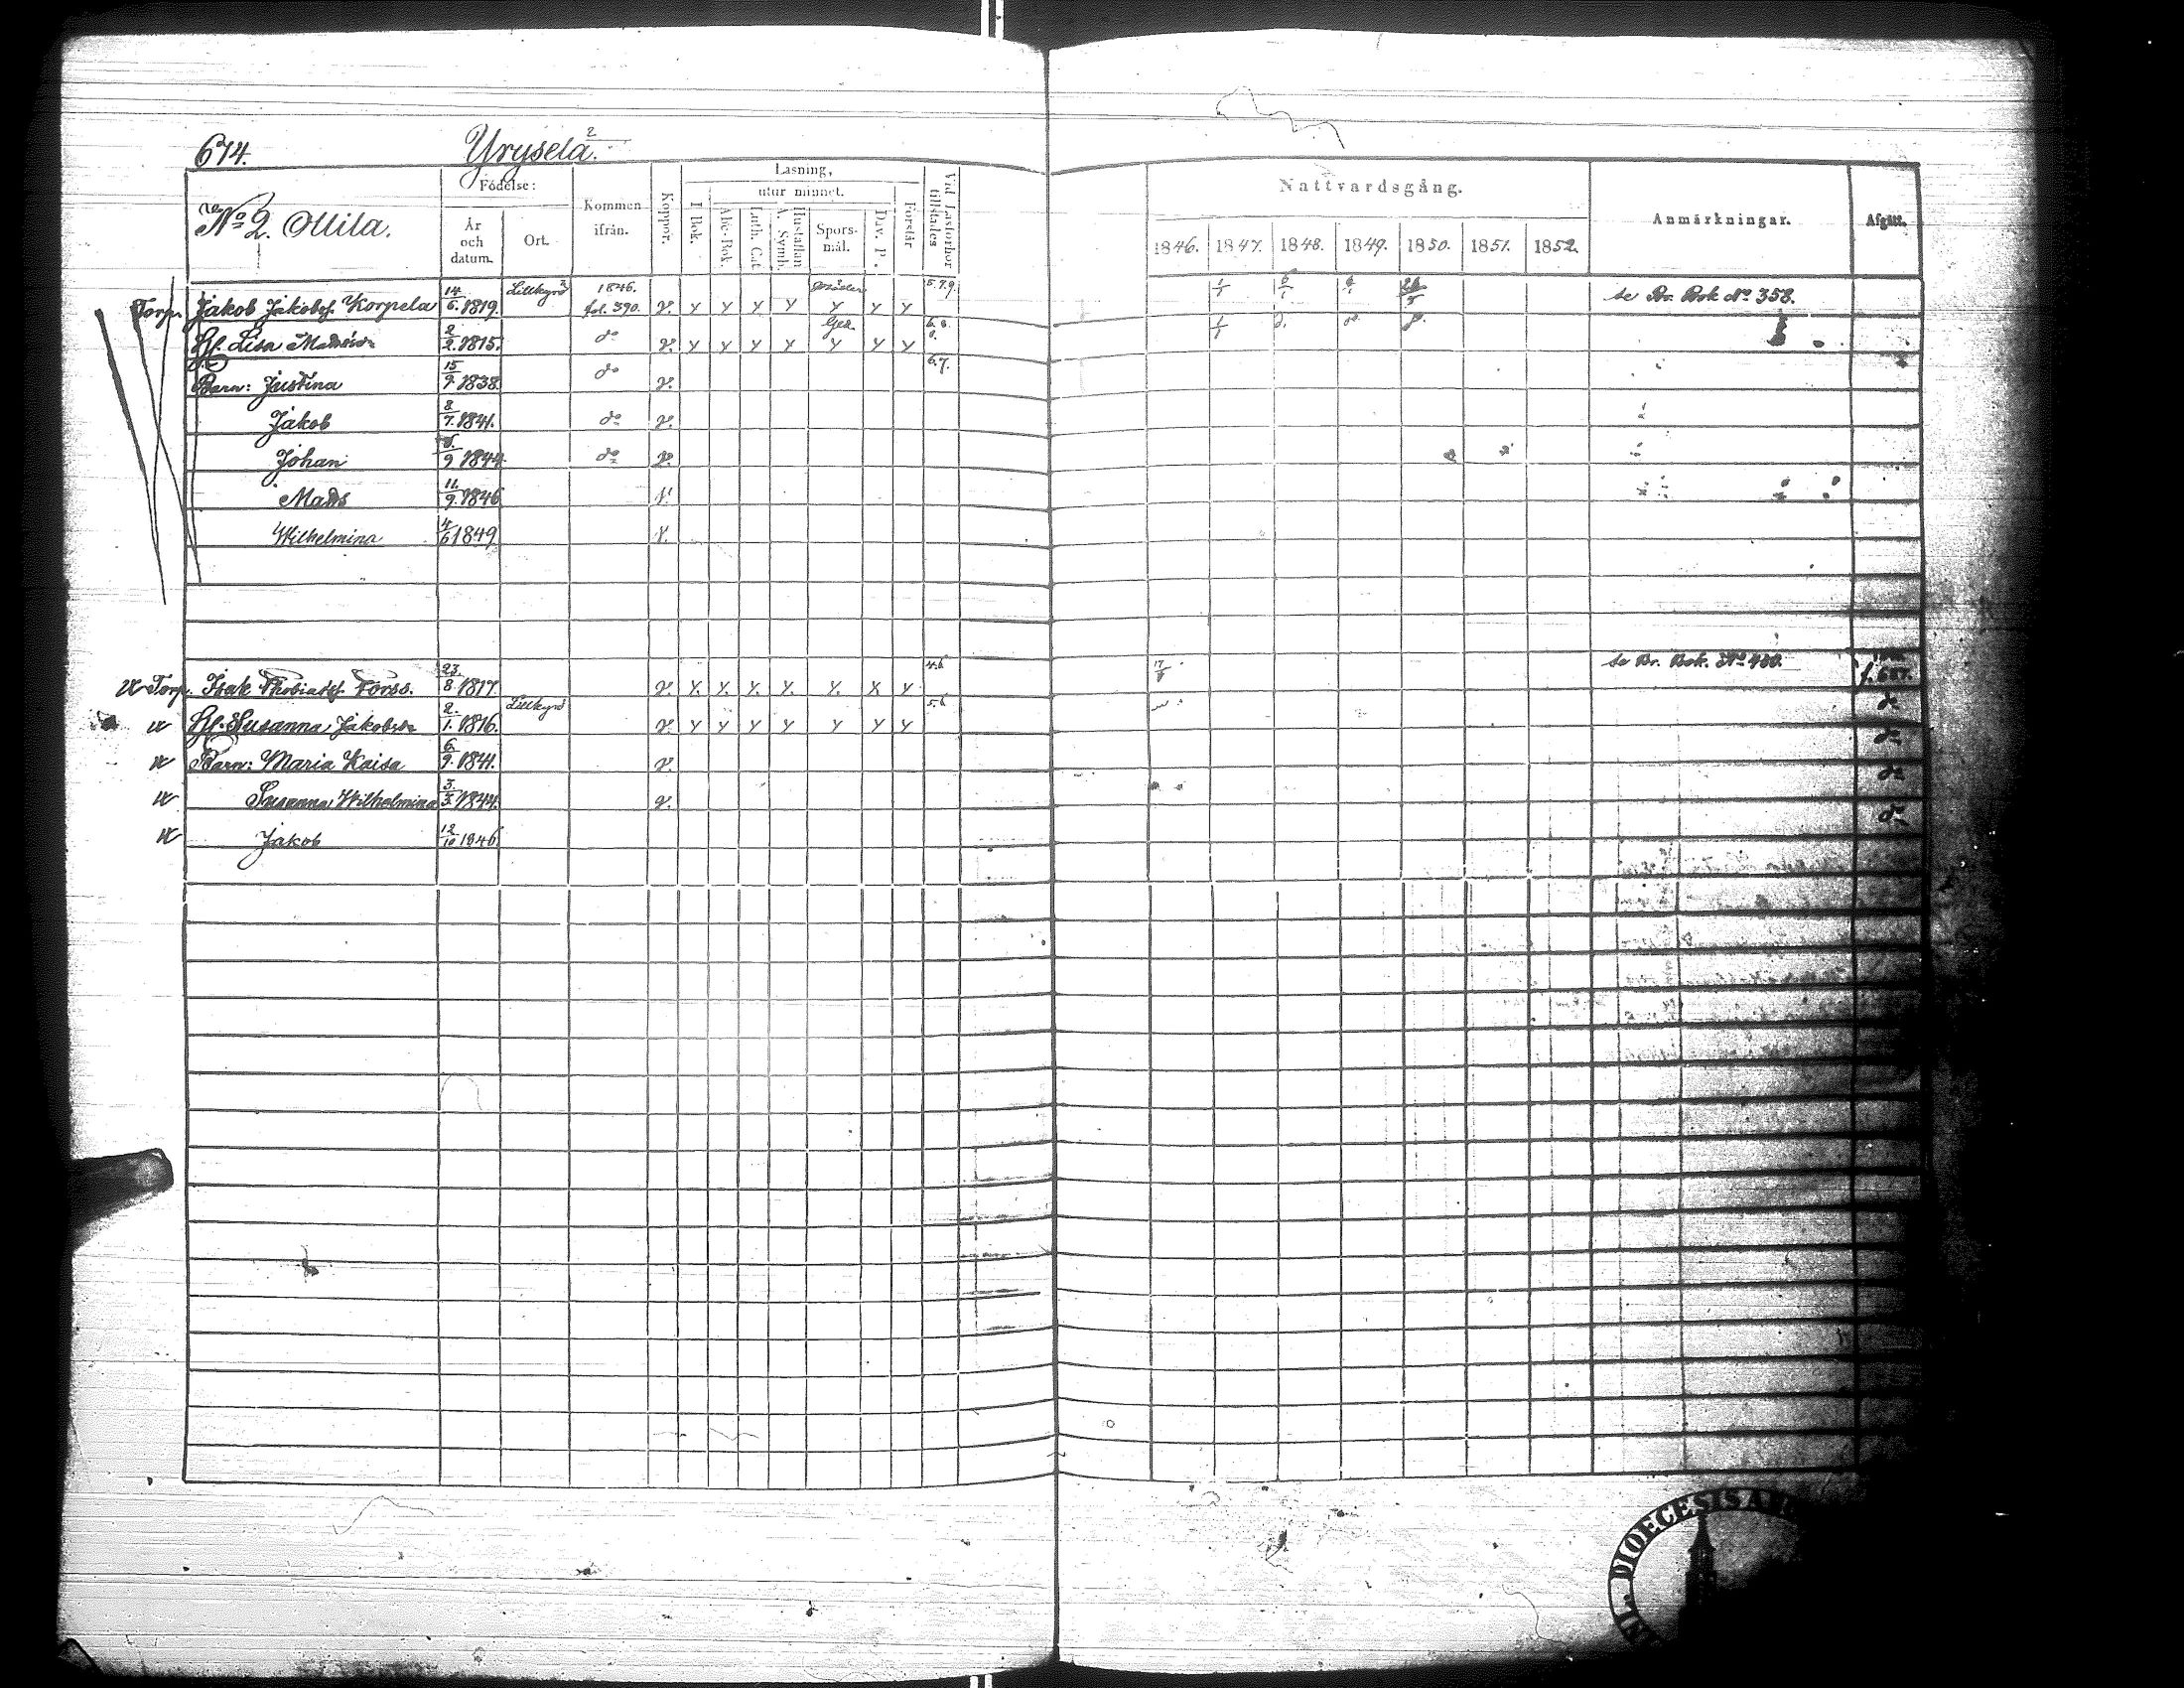 674. Yryselä. 2
No 2. Ollila.
Födelse:
År och datum.
Ort.
Kommen ifrån.
Koppor.
Läsning,
utur minnet.
I Bok.
Abc-Bok.
Luth. Cat.
Hustaflan A. Symb.
Spörs-mål.
Dav. Ps.
Förstår
Vid Läsförhör tillstädes
Nattvardsgång.
1846. 1847. 1848. 1849. 1850. 1851. 1852.
Anmärkningar.
Afgått.
Torp. Jakob Jakobss. Korpela 14/6. 1819. Lillkyrö 1846. fol. 390. v. y y y y y y y 5.7.9. 1/1 6/1 se Br. Bok No 358.
Hu. Lisa Madsdr 2/2. 1815. do v. y y y y y y y 6.8.
Barn: Justina 15/9. 1838. do v. 6.7.
Jakob 8/7. 1841. do v.
Johan 9 1844. do v.
Mads 11./9. 1846 v.
Wilhelmina 4/6 1849 v.
Torp. Isak Thobiass. Forss. 23./8. 1817. v. y. y. y. y. y. y y 4.6 17/ se Br. Bok. No 480. f. 687.
Hu. Susanna Jakobsdr 2./1. 1816. Lillkyrö v. y y y y y y y 5.6 do
Barn: Maria Kaisa 6./9. 1841. v. do
Susanna Wilhelmina 3./3. 1844. v. do
Jakob 12/10 1846. do
DIOECESIS